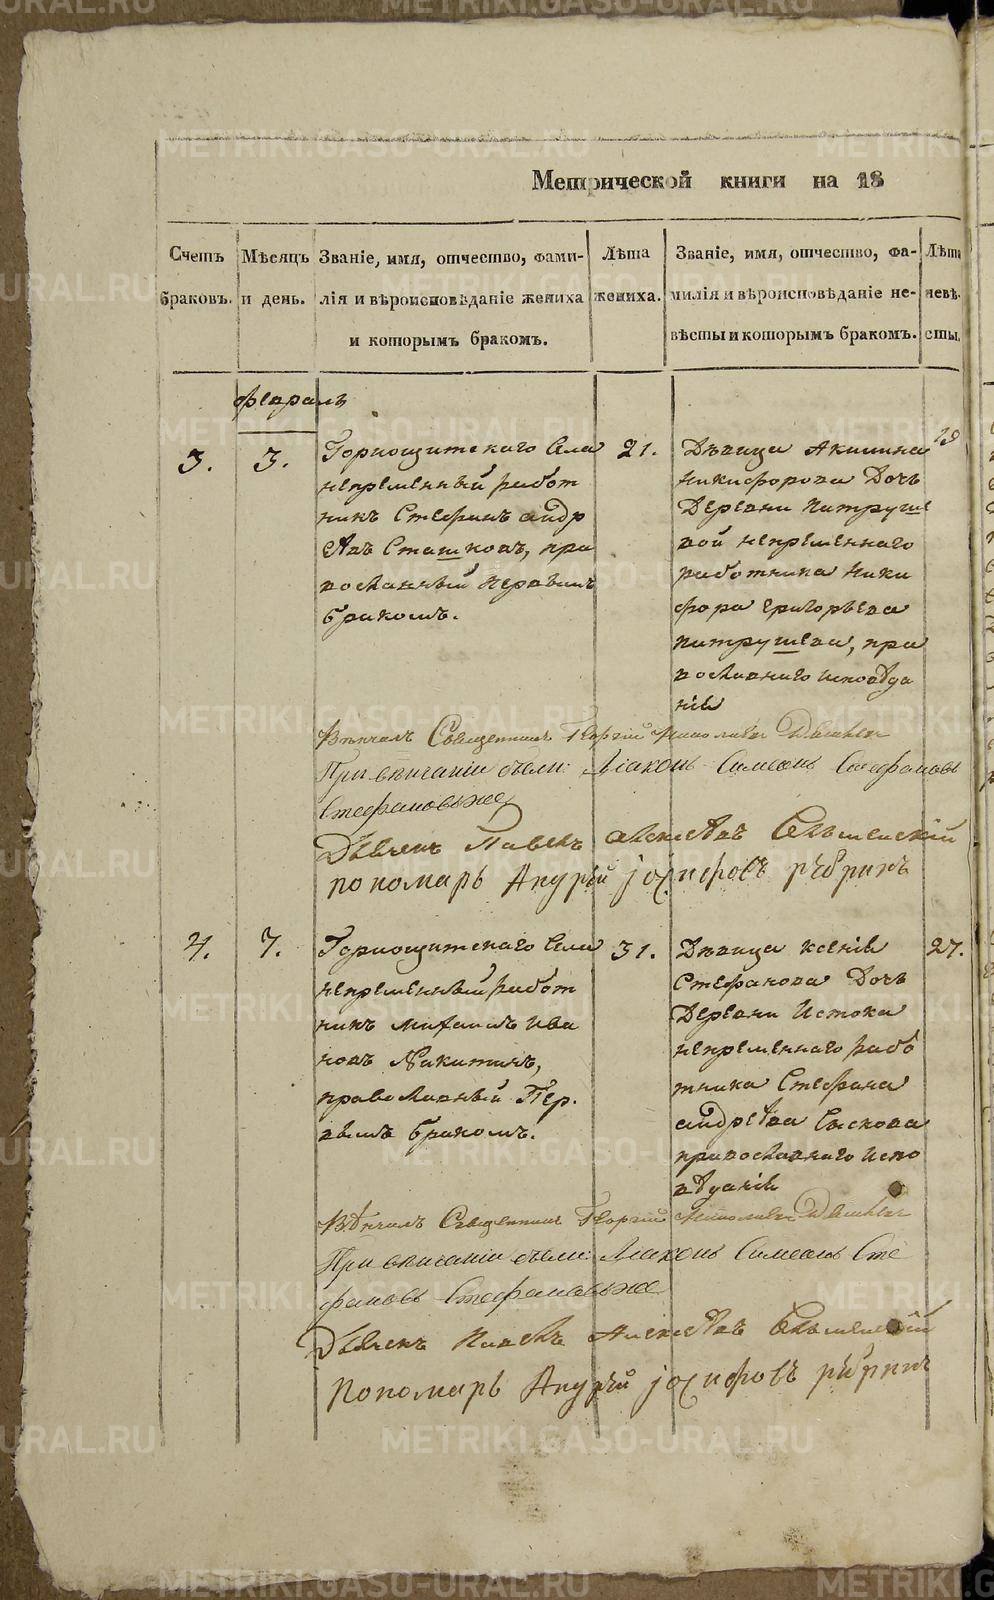 Метрической книги на 18
Счетъ браковъ.
Мѣсяцъ и день.
Званіе, имя, отчество, фами-
лія и вѣроисповѣданіе жениха
и которымъ бракомъ.
Лѣта жениха.
Званіе, имя, отчество, фа-
милія и вѣроисповѣданіе не-
вѣсты и которымъ бракомъ.
Лѣта невѣ-
сты.
Февраль
3.
3.
Горнощитскаго Села
непременный работ
никъ Стефанъ андр
еевъ Сташковъ, пра
вославный первымъ
бракомъ.
21.
Дѣвица Акилина
Никифорова Дочь
Деревни Патруше
вой непременнаго
работника Ники
фора Григорьева
Патрушева, пра
вославнаго исповѣда
нія
19
Вѣнчалъ Священникъ Георгій
При вѣнчаніи были: Діаконъ Симеонъ Стефановъ
Стефановъ же
Дьячекъ Павелъ алексѣевъ
пономарь Андрѣй Іосифовъ
4.
7.
Горнощитскаго Села
непременный работ
никъ Михаилъ Ива
новъ Никитинъ,
православный Пер.
вымъ бракомъ.
31.
Дѣвица Ксенія
Стефанова Дочь
Деревни Истока
непременнаго рабо
тника Стефана
андреева Сыскова
православнаго испо
вѣданія
27.
Вѣнчалъ Священникъ Георгій
При вѣнчаніи были: Діаконъ Симеонъ Сте
фановъ Стефановъ же
Дьячекъ Павелъ Алексѣевъ
Пономарь Андрѣй Іосифовъ
METRIKI.GASO-URAL.RU